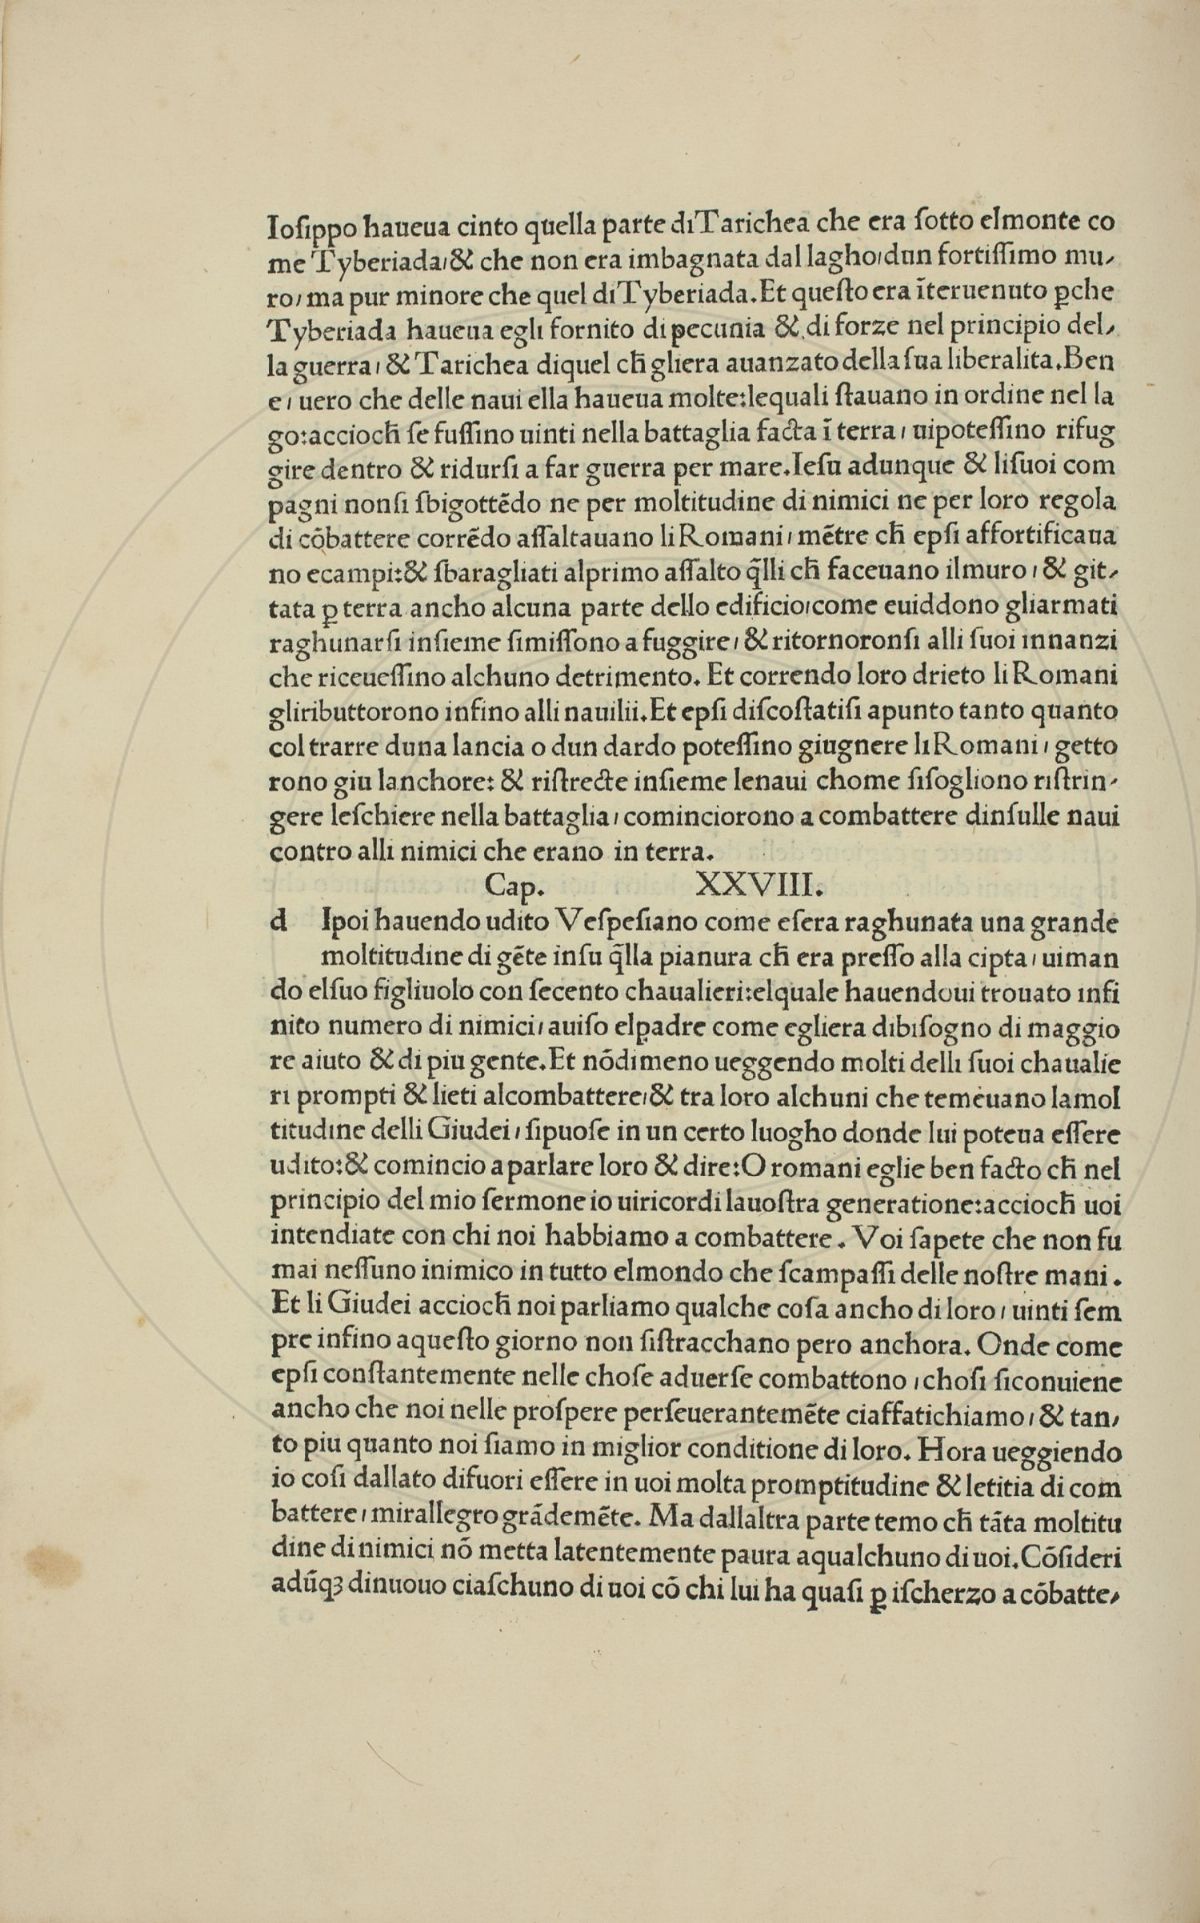 Ioſippo haueua cinto quella parte di Tarichea che era ſotto elmonte co
me Tyberiada/& che non era imbagnata dal lagho/dun fortiſſimo mu/
ro/ma pur minore che quel di Tyberiada.Et queſto era ĩteruenuto ꝑche
Tyberiada haueua egli fornito di pecunia & di forze nel principio del/
la guerra/& Tarichea diquel ch̃ gliera auanzato della ſua liberalita.Ben
e/uero che delle naui ella haueua molte:lequali ſtauano in ordine nel la
go:accioch̃ ſe fuſſino uinti nella battaglia facta ĩ terra/uipoteſſino rifug
gire dentro & ridurſi a far guerra per mare.Ieſu adunque & liſuoi com
pagni nonſi ſbigottẽdo ne per moltitudine di nimici ne per loro regola
di cõbattere corrẽdo aſſaltauano li Romani/mẽtre ch̃ epſi affortificaua
no ecampi:& ſbaragliati alprimo aſſalto q̃lli ch̃ faceuano ilmuro/& git/
tata ꝑ terra ancho alcuna parte dello edificio/come euiddono gliarmati
raghunarſi inſieme ſimiſſono a fuggire/& ritornoronſi alli ſuoi innanzi
che riceueſſino alchuno detrimento. Et correndo loro drieto li Romani
gliributtorono infino alli nauilii.Et epſi diſcoſtatiſi apunto tanto quanto
col trarre duna lancia o dun dardo poteſſino giugnere li Romani/getto
rono giu lanchore: & riſtrecte inſieme lenaui chome ſiſogliono riſtrin/
gere leſchiere nella battaglia/cominciorono a combattere dinſulle naui
contro alli nimici che erano in terra.
Cap. XXVIII.
d Ipoi hauendo udito Veſpeſiano come eſera raghunata una grande
moltitudine di gẽte inſu q̃lla pianura ch̃ era preſſo alla cipta/uiman
do elſuo figliuolo con ſecento chaualieri:elquale hauendoui trouato infi
nito numero di nimici/auiſo elpadre come egliera dibiſogno di maggio
re aiuto & di piu gente.Et nõdimeno ueggendo molti delli ſuoi chaualie
ri prompti & lieti alcombattere/& tra loro alchuni che temeuano lamol
titudine delli Giudei/ſipuoſe in un certo luogho donde lui poteua eſſere
udito:& comincio a parlare loro & dire:O romani eglie ben facto ch̃ nel
principio del mio ſermone io uiricordi lauoſtra generatione:accioch̃ uoi
intendiate con chi noi habbiamo a combattere. Voi ſapete che non fu
mai neſſuno inimico in tutto elmondo che ſcampaſſi delle noſtre mani.
Et li Giudei accioch̃ noi parliamo qualche coſa ancho di loro/uinti ſem
pre infino aqueſto giorno non ſiſtracchano pero anchora. Onde come
epſi conſtantemente nelle choſe aduerſe combattono/choſi ſiconuiene
ancho che noi nelle proſpere perſeuerantemẽte ciaffatichiamo/& tan/
to piu quanto noi ſiamo in miglior conditione di loro. Hora ueggiendo
io coſi dallato difuori eſſere in uoi molta promptitudine & letitia di com
battere/mirallegro grãdemẽte. Ma dallaltra parte temo ch̃ tãta moltitu
dine di nimici nõ metta latentemente paura aqualchuno di uoi.Cõſideri
adũqꝫ dinuouo ciaſchuno di uoi cõ chi lui ha quaſi ꝑ iſcherzo a cõbatte/